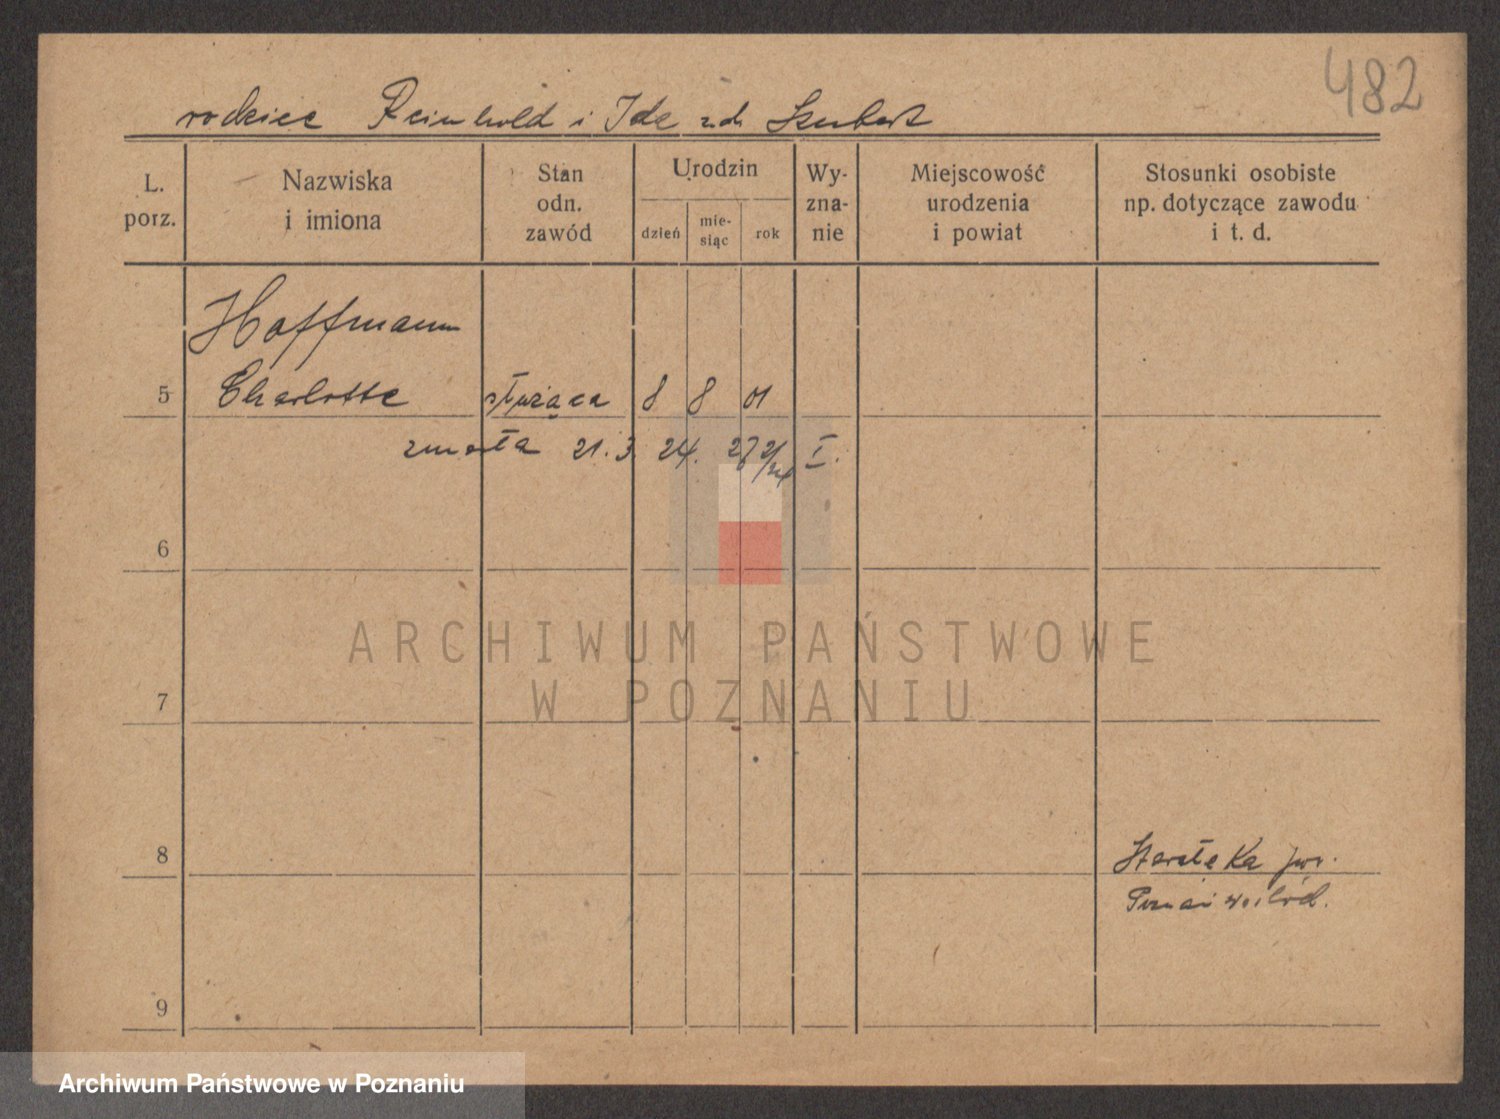 482
rodzice Reinhold i Ida z d. Szubert
L. porz.
Nazwiska i imiona
Stan odn. zawód
Urodzin
dzień
mie-siąc
rok
Wy-zna-nie
Miejscowość urodzenia i powiat
Stosunki osobiste np. dotyczące zawodu i t. d.
Hoffmann
5 Charlotte służąca 8 8 01
zmarła 21. 3. 24. I.
6
ARCHIWUM PAŃSTWOWE
W POZNANIU
7
8
9
Archiwum Państwowe w Poznaniu